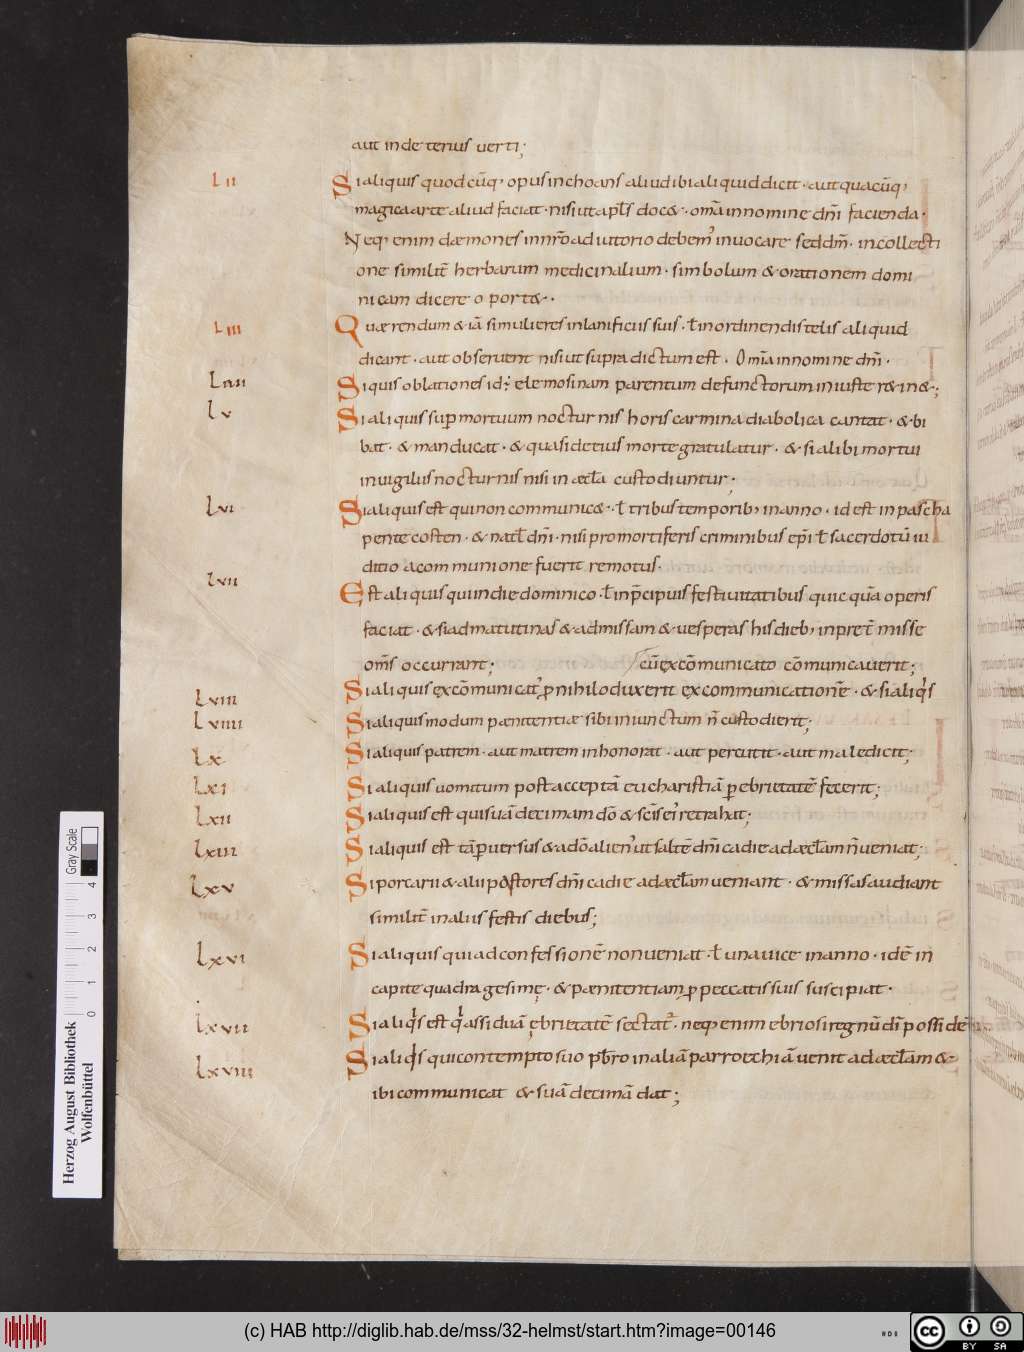 aut inde terius verti;
Lii Si aliquis quodcūq; opus inchoans aliud ibi aliquid dicit · aut quacūq;
magica arte aliud faciat · nisi ut apl's doc& · om̄a in nomine dn̄i facienda ·
Neq; enim dæmones in nr̄o adiutorio debem' invocare sed dm̄ · in collecti
one similit̄ herbarum medicinalium · simbolum & orationem domi
nicam dicere oport& ·
Liii Quærendum & iā si mulieres in lanificiis suis · ł in ordinendis telis aliquid
dicant · aut observent nisi ut supra dictum est · Om̄ia in nomine dn̄i ·
Liiii Si quis oblationes id; elemosinam parentum defunctorum iniuste r&in&;
Lv Si aliquis sup mortuum nocturnis horis carmina diabolica cantat · & bi
bat · & manducat · & quasi de eius morte gratulatur · & si alibi mortui
in vigiliis nocturnis nisi in æcl̄a custodiuntur;
Lvi Si aliquis est qui non communic& · ł tribus temporib; in anno · id est in pascha
pentecosten · & natl̄ dn̄i · nisi pro mortiferis criminibus ep̄i ł sacerdotū iu
ditio a communione fuerit remotus·
Lvii Est aliquis qui in die dominico · ł in p̄cipuis festivitatibus quicquā operis
faciat · & si ad matutinas & ad missam & vesperas his dieb; in pret̄ misse
om̄s occurrant;
cū excōmunicato cōmunicaverit;
Lviii Si aliquis excōmunicat' p nihilo duxerit excommunicationē · & si aliq's
Lviiii Si aliquis modum pænitentiæ sibi iniunctum n̄ custodierit;
Lx Si aliquis patrem · aut matrem inhonorat · aut percutit · aut maledicit;
Lxi Si aliquis vomitum post acceptā eucharistiā p ebrietatē fecerit;
Lxii Si aliquis est qui suā decimam dō & scīs ei' retrahat;
Lxiii Si aliquis est tā pversus & a dō alien' ut saltē dn̄icadie ad æcl̄am n̄ veniat;
Lxv Si porcarii & alii pastores dn̄icadie ad æcl̄am veniant · & missas audiant
similit̄ in aliis festis diebus;
Lxvi Si aliquis qui ad confessionē non veniat · ł una vice in anno · idē in
capite quadragesimę · & pænitentiam p peccatis suis suscipiat ·
Lxvii Si aliq's est q' assiduā ębrietatē sectat' · neq; enim ebriosi regnū dī possidē
Lxviii Si aliq's qui contempto suo pb̄ro in aliā parrochiā venit ad æcl̄am &
ibi communicat & suā decimā dat;
Herzog August Bibliothek
Wolfenbüttel
0 1 2 3 4
Gray Scale
(c) HAB http://diglib.hab.de/mss/32-helmst/start.htm?image=00146
cc BY SA